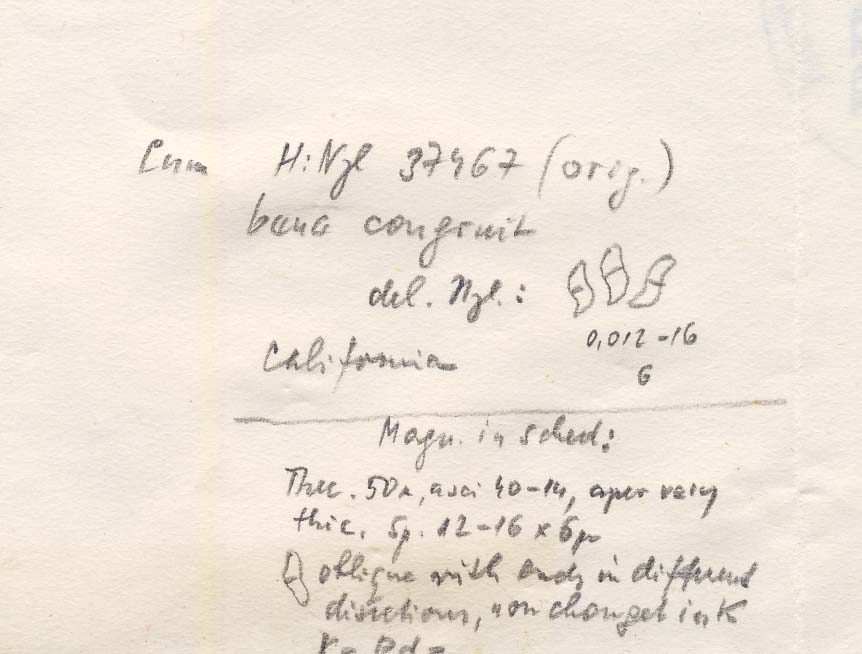 Cum H: Nyl 37467 (orig.)
bene congruit
del. Nyl.:
0,012-16
6
California
Magn. in sched:
Thec. 50µ, asci 40-14, apex very
thic. Sp. 12-16 x 6µ
oblique with ends in different
directions, non changed in K
K- Pd-